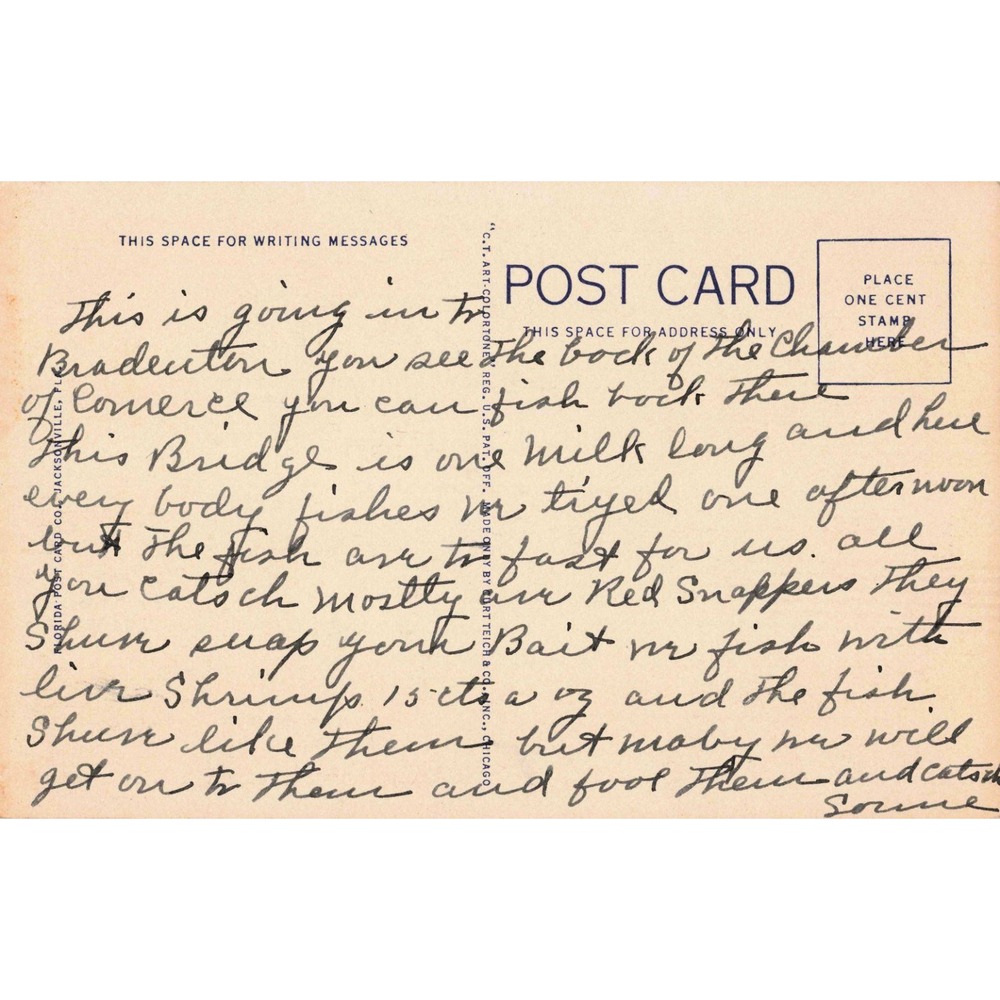 THIS SPACE FOR WRITING MESSAGES
POST CARD
THIS SPACE FOR ADDRESS ONLY
PLACE
ONE CENT
STAMP
HERE
"C.T. ART-COLORTONE" REG. U.S. PAT. OFF. MADE ONLY BY CURT TEICH & CO., INC., CHICAGO
FLORIDA POST CARD CO., JACKSONVILLE, FLA.
This is going in to
Bradenton you see The back of The Chamber
of Comerce you can fish back There
This Bridge is one Milk long and here
every body fishes we tryed one afternoon
but The fish are to fast for us. all
you catsch mostly are Red Snappers They
Shure snap your Bait we fish with
live Shrimp. 15 cts a oz and The fish
Shure like Them but maby we will
get on to Them and fool Them and catsch
Some